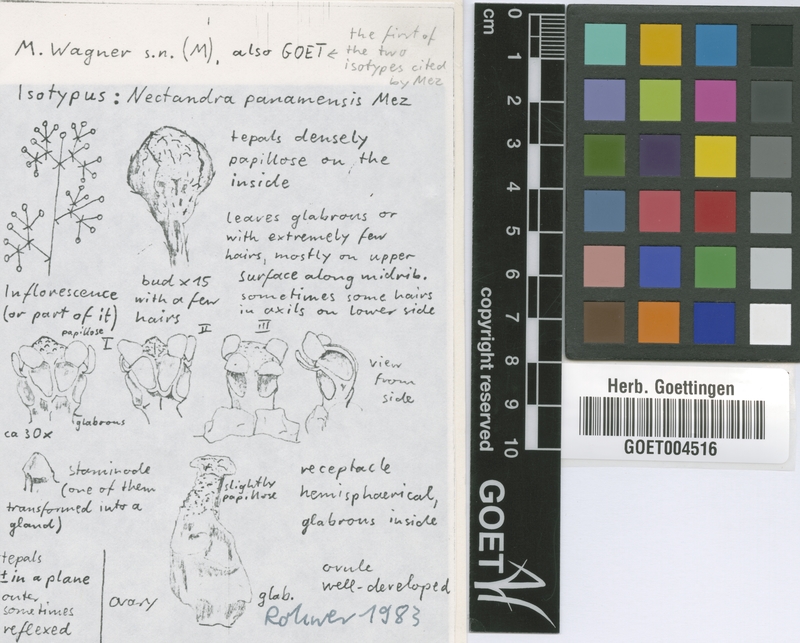 M. Wagner s.n. (M), also GOET ←
the first of
the two
isotypes cited
by Mez
Isotypus: Nectandra panamensis Mez
tepals densely
papillose on the
inside
leaves glabrous or
with extremely few
hairs, mostly on upper
surface along midrib.
sometimes some hairs
in axils on lower side
Inflorescence
(or part of it)
bud x 15
with a few
hairs
papillose
I
II
III
view
from
side
glabrous
ca 30x
staminode
(one of them
transformed into a
gland)
slightly
papillose
receptacle
hemisphaerical,
glabrous inside
ovule
well-developed
tepals
± in a plane
outer
sometimes
reflexed
ovary
glab.
Rohwer 1983
cm
0
1
2
3
4
5
6
7
8
9
10
copyright reserved
GOET
Herb. Goettingen
GOET004516